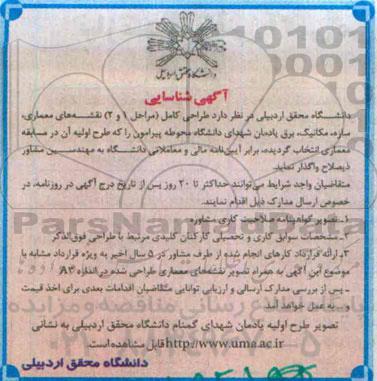 دانشگاه محقق اردبیلی
آگهی شناسایی
دانشگاه محقق اردبیلی در نظر دارد طراحی کامل (مراحل ۱ و ۲) نقشه‌های معماری،
سازه، مکانیک، برق یادمان شهدای دانشگاه محوطه پیرامون را که طرح اولیه آن در مسابقه
معماری انتخاب گردیده، برابر آیین‌نامه مالی و معاملاتی دانشگاه به مهندسین مشاور
ذیصلاح واگذار نماید.
متقاضیان واجد شرایط می‌توانند حداکثر تا ۲۰ روز پس از تاریخ درج آگهی در روزنامه، در
خصوص ارسال مدارک ذیل اقدام نمایند.
۱- تصویر گواهینامه صلاحیت کاری مشاوره.
۲- مشخصات سوابق کاری و تحصیلی کارکنان کلیدی مرتبط با طراحی فوق‌الذکر
۳- ارائه قرارداد کارهای انجام شده از طرف مشاور در ۵ سال اخیر به ویژه قرارداد مشابه با
موضوع این آگهی به همراه تصویر نقشه‌های معماری طراحی شده در اندازه A3
- پس از بررسی مدارک ارسالی و ارزیابی توانایی متقاضیان اقدامات بعدی برای اخذ قیمت
و... به عمل خواهد آمد.
تصویر طرح اولیه یادمان شهدای گمنام دانشگاه محقق اردبیلی به نشانی
http://www.uma.ac.ir قابل مشاهده است.
دانشگاه محقق اردبیلی